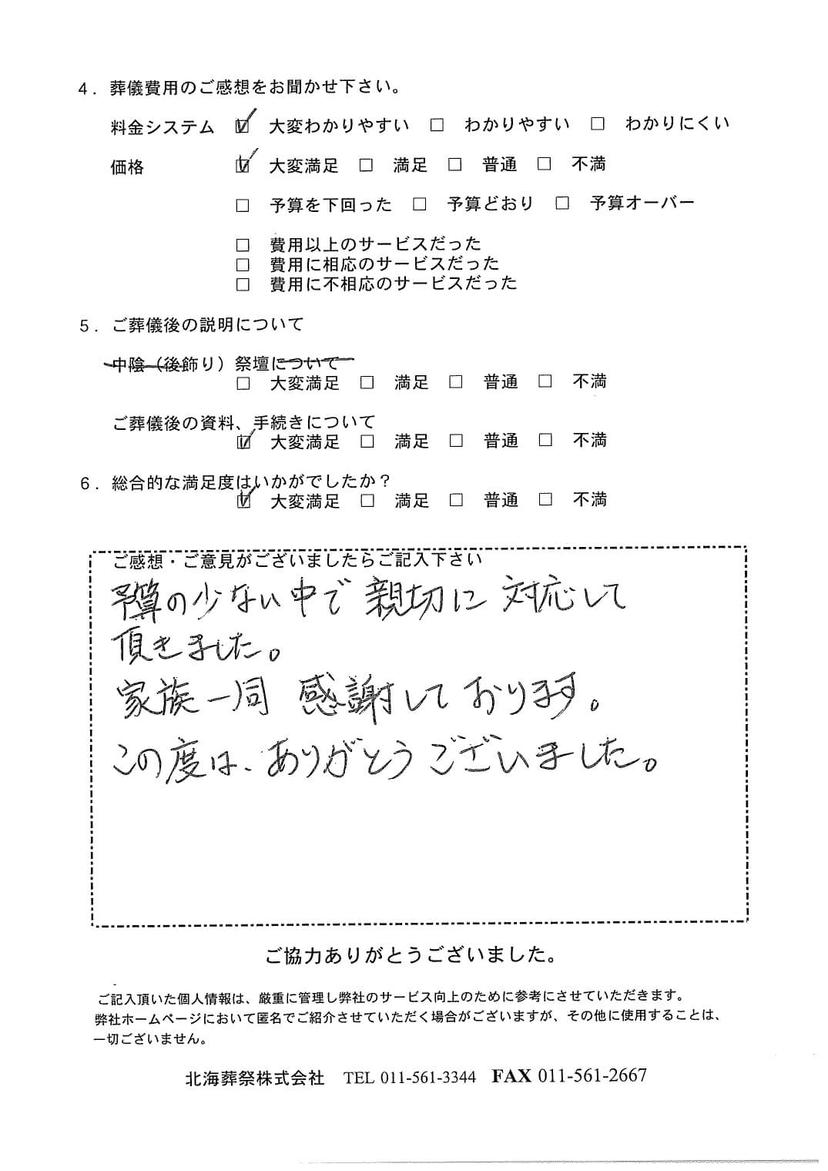 4．葬儀費用のご感想をお聞かせ下さい。
料金システム ☑ 大変わかりやすい □ わかりやすい □ わかりにくい
価格 ☑ 大変満足 □ 満足 □ 普通 □ 不満
□ 予算を下回った □ 予算どおり □ 予算オーバー
□ 費用以上のサービスだった
□ 費用に相応のサービスだった
□ 費用に不相応のサービスだった
5．ご葬儀後の説明について
中陰（後飾り）祭壇について
□ 大変満足 □ 満足 □ 普通 □ 不満
ご葬儀後の資料、手続きについて
☑ 大変満足 □ 満足 □ 普通 □ 不満
6．総合的な満足度はいかがでしたか？
☑ 大変満足 □ 満足 □ 普通 □ 不満
ご感想・ご意見がございましたらご記入下さい
予算の少ない中で 親切に 対応して
頂きました。
家族一同 感謝しております。
この度は、ありがとうございました。
ご協力ありがとうございました。
ご記入頂いた個人情報は、厳重に管理し弊社のサービス向上のために参考にさせていただきます。
弊社ホームページにおいて匿名でご紹介させていただく場合がございますが、その他に使用することは、
一切ございません。
北海葬祭株式会社 TEL 011-561-3344 FAX 011-561-2667